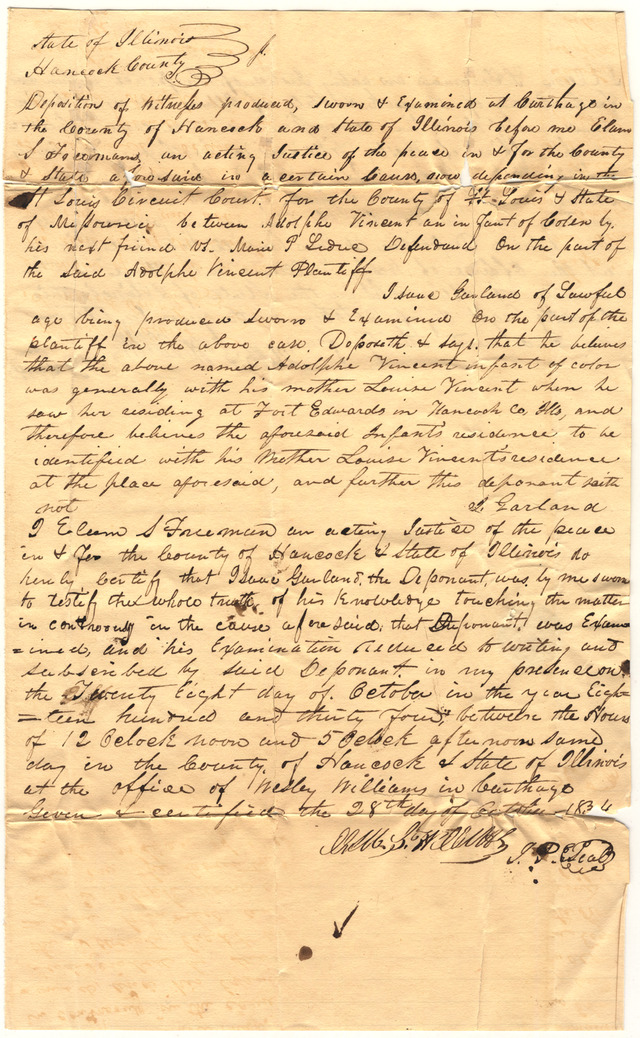 State of Illinois
Hancock County
Deposition of Witness produced, sworn & Examined at Carthage in
the County of Hancock and State of Illinois before me Elam
S Freeman, an acting Justice of the peace in & for the County
& State aforesaid in a certain Cause, now depending in the
St Louis Circuit Court. for the County of St. Louis & State
of Missouri between Adolphe Vincent an infant of Color by
his next friend vs. Marie P Leduc Defendand On the part of
the said Adolphe Vincent Plantiff
Isaac Garland of Lawful
age being produced Sworn & Examined On the part of the
plantiff in the above case Deposeth & says. that he believes
that the above named Adolphe Vincent infant of color
was generally with his mother Louise Vincent when he
saw her residing at Fort Edwards in Hancock Co, Ills, and
therefore believes the aforesaid Infant's residence to be
identified with his Mother Louise Vincent's residence
at the place aforesaid, and further this deponant saith
not I. Garland
I Elam S Freeman an acting Justice of the peace
in & for the County of Hancock & State of Illinois do
hereby Certify that Isaac Garland, the Deponant, was, by me sworn
to testify the whole truth of his Knowledge touching the matter
in controversy in the cause aforesaid; that Deponant was Exam
=ined, and his Examination reduced to writing and
subscribed by said Deponant. in my presence on
the Twenty Eight day of October in the year Eigh=
=teen hundred and thirty four, between the Hours
of 12 Oclock noon and 5 Oclock afternoon same
day in the County of Hancock & State of Illinois
at the office of Wesley Williams in Carthage
Given & certified the 28th day of October 1834
J. P. Seal